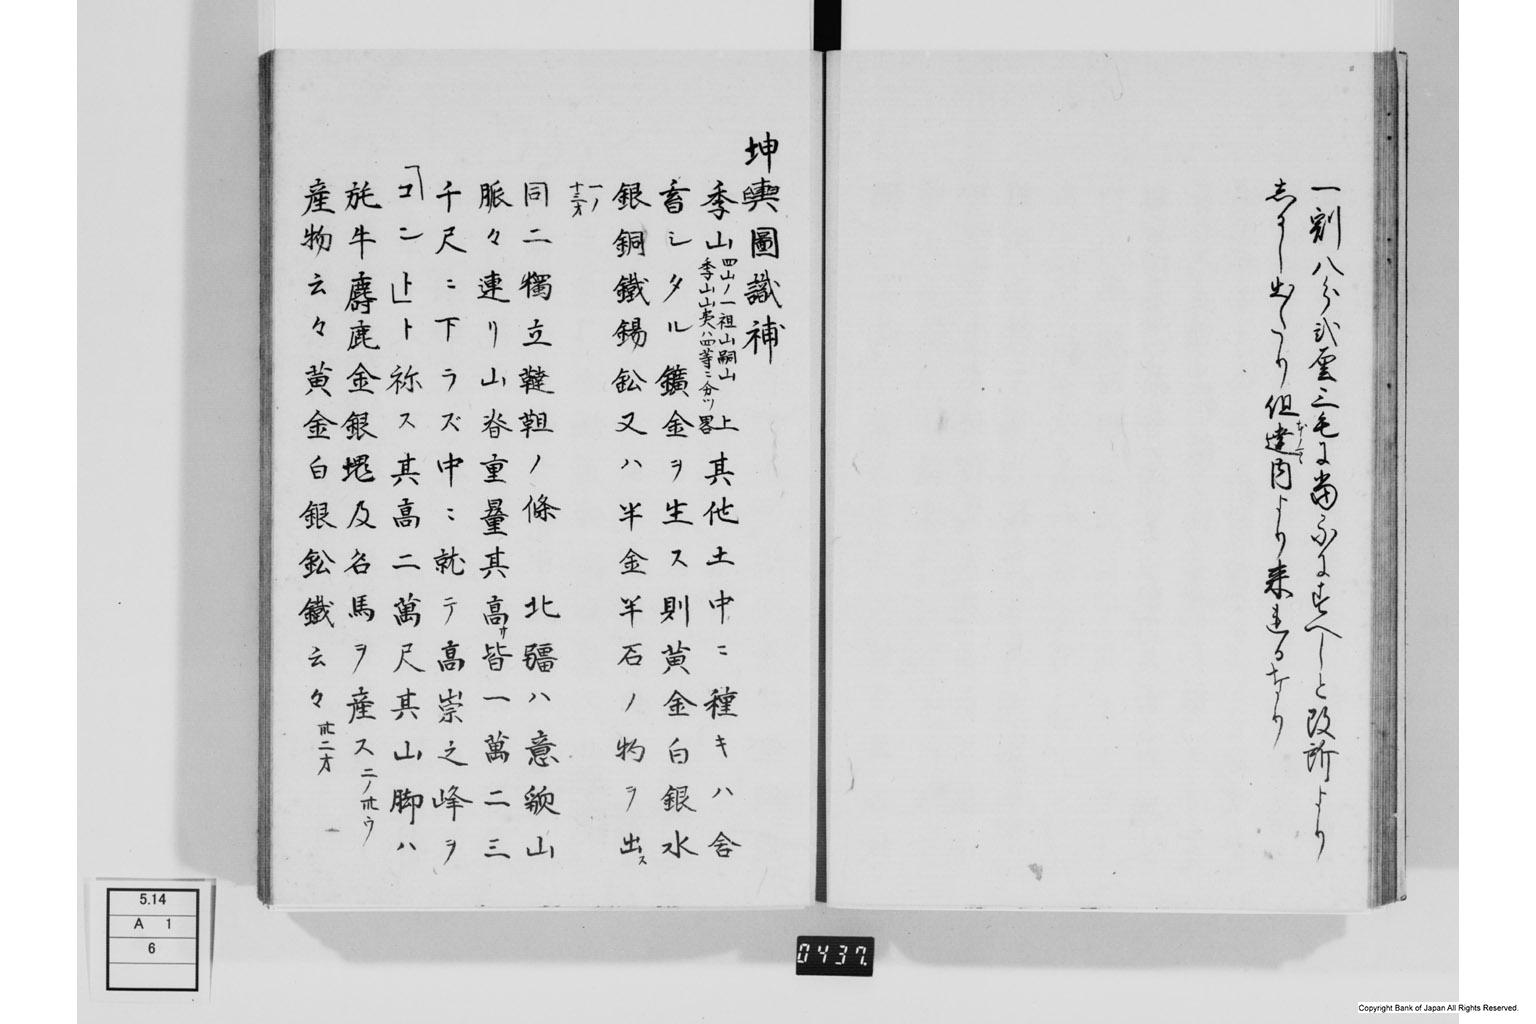 一割八分弐厘三毛に當るにすへしと改所より
出たり但達内より来れるなり
坤輿圖識補
季山四山ノ一祖山嗣山季山山英ハ四等ニ分ツ上畧其他土中ニ種キハ含
畜シタル鑛金ヲ生ス則黄金白銀水
銀銅鐵錫鈆又ハ半金半石ノ物ヲ出ス
一ノ十三才
同二獨立韃靼ノ條 北疆ハ意貌山
脈々連リ山脊重疊其高サ皆一萬二三
千尺ニ下ラズ中ニ就テ高崇之峰ヲ
「コント」ト称ス其高二萬尺其山脚ハ
旄牛麝鹿金銀塊及名馬ヲ産ス二ノ卅ウ
産物云々黄金白銀鈆鐵云々卅二才
5.14
A 1
6
0437
Copyright Bank of Japan All Rights Reserved.